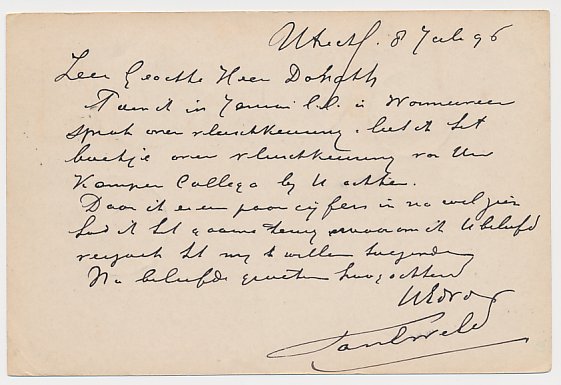 Utrecht. 8 Juli 96
Zeer Geachte Heer Donath
Toen ik in Januari l.l. u
sprak over vleeschkeuring. liet ik het
boekje over vleeschkeuring van Uw
Kamper Collega bij U achter.
Daar ik er een paar cijfers in na wil zien
had ik het gaarne terug waarom ik Ubeleefd
verzoek het mij te willen toezenden
Na beleefde groeten hoogachtend
UEdvdr